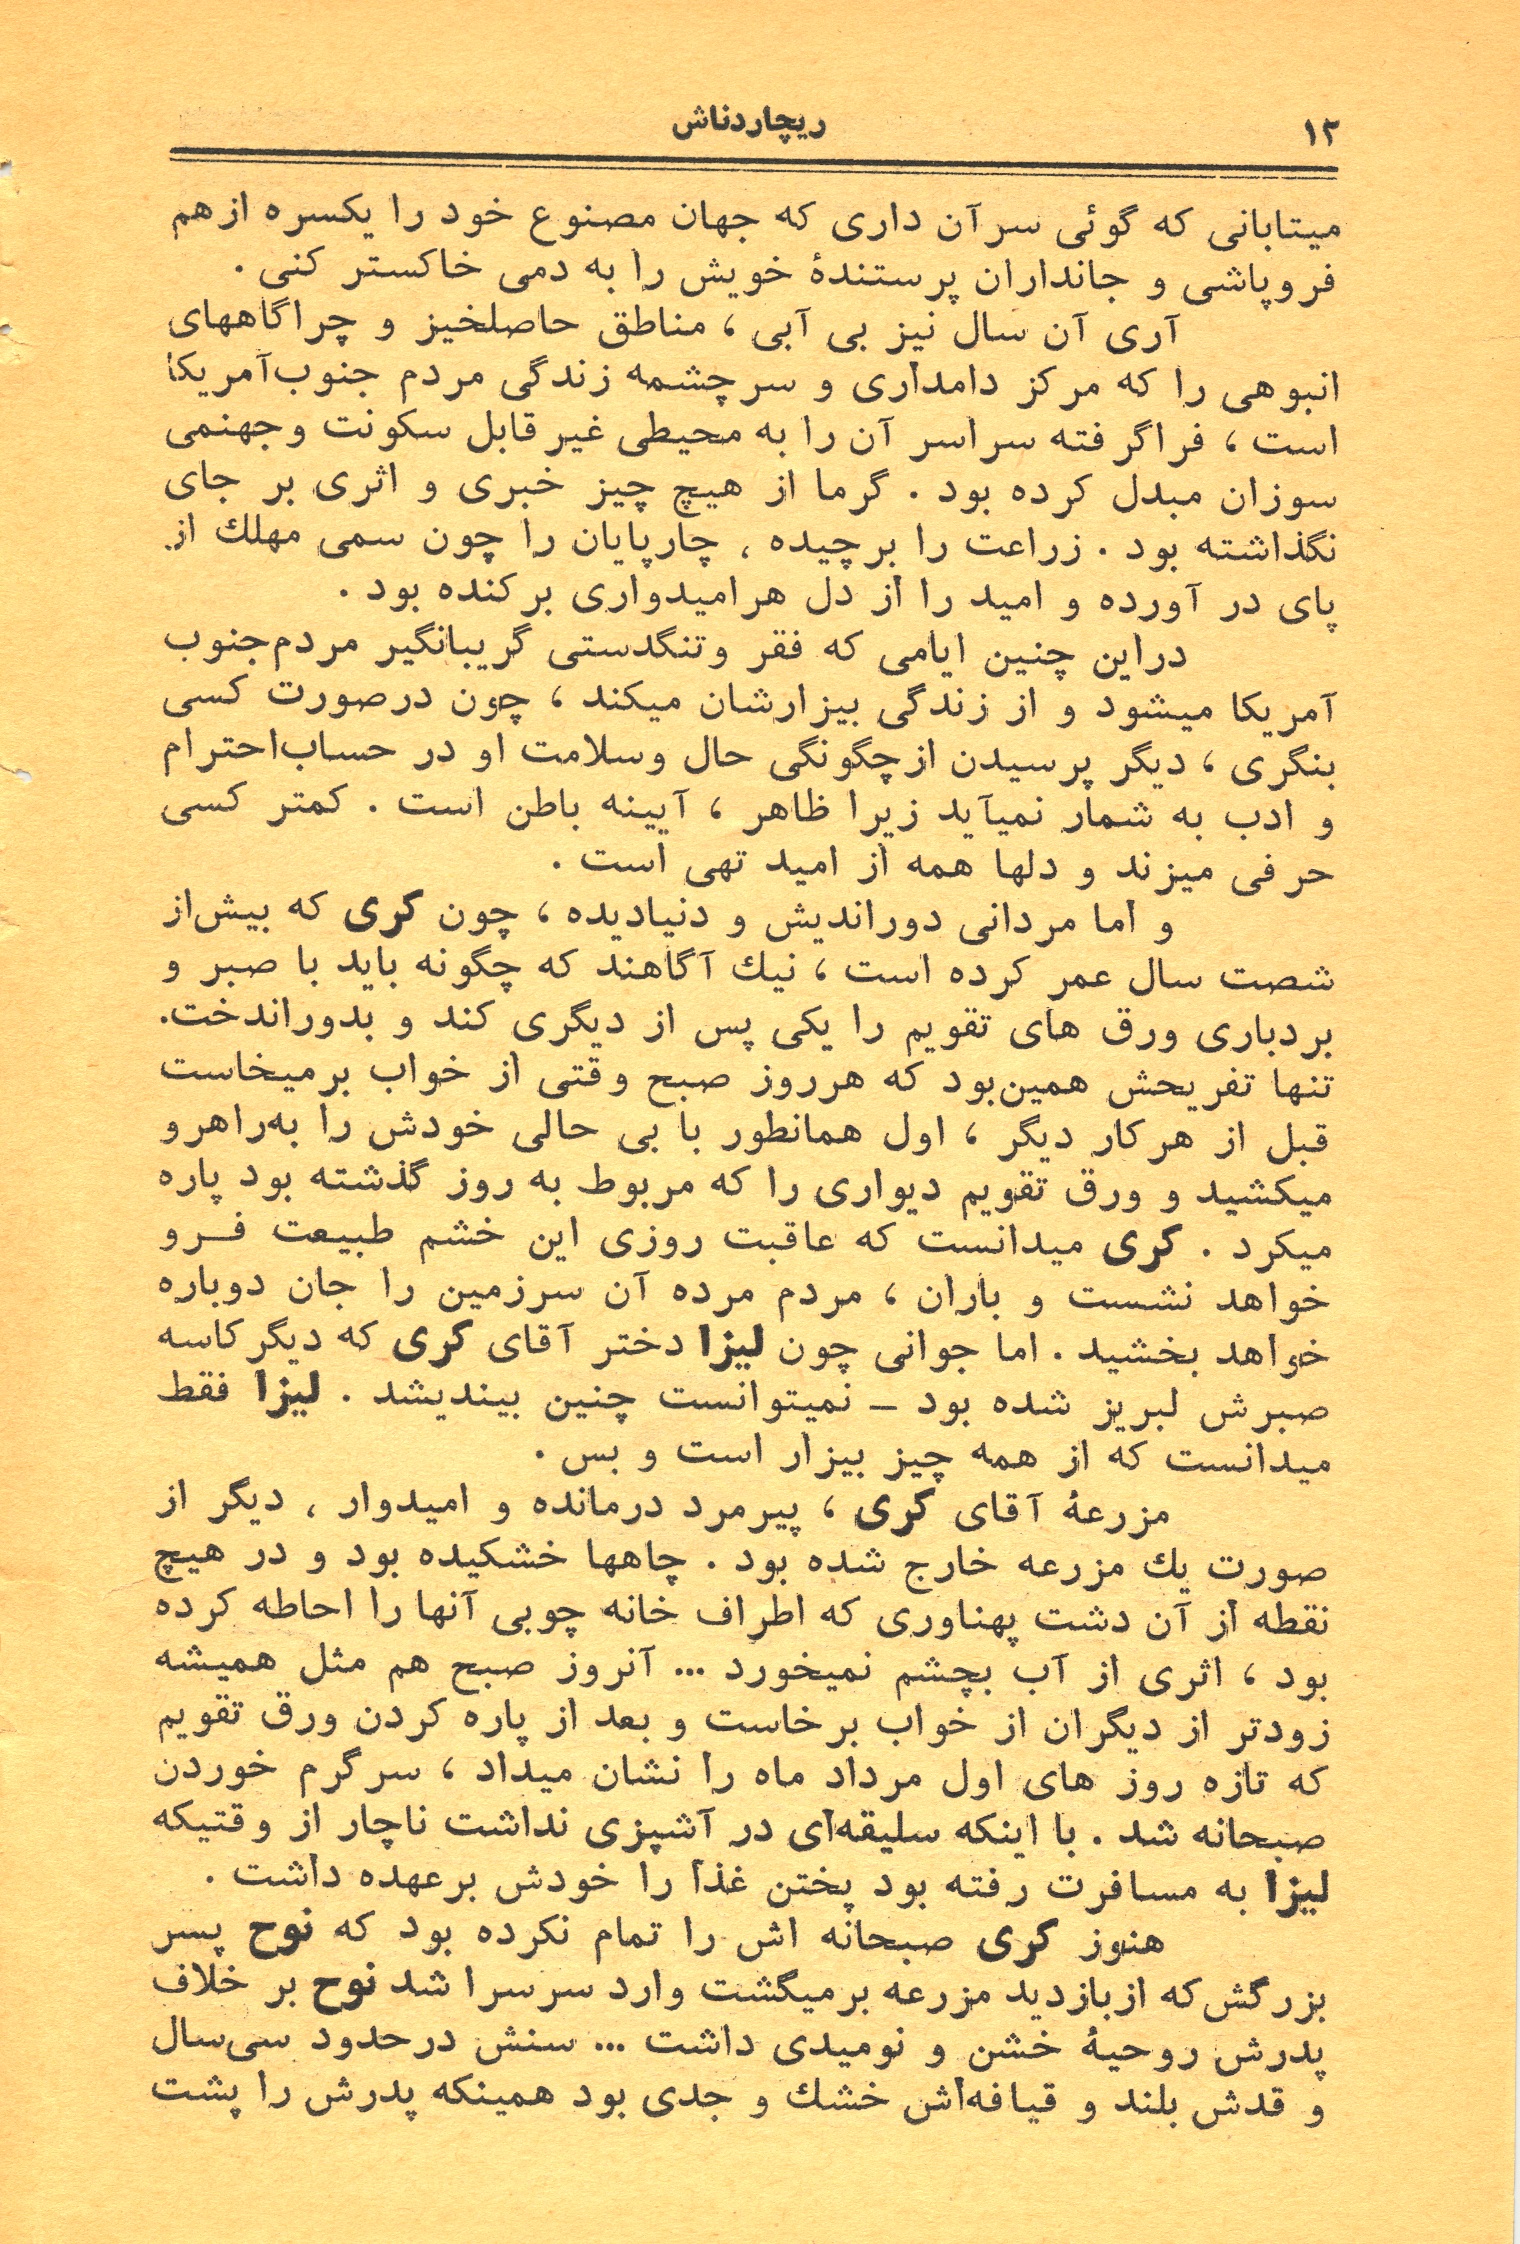 ۱۲
ریچاردناش
میتابانی که گوئی سرآن داری که جهان مصنوع خود را یکسره ازهم
فروپاشی و جانداران پرستندۀ خویش را به دمی خاکستر کنی .
آری آن سال نیز بی آبی ، مناطق حاصلخیز و چراگاههای
انبوهی را که مرکز دامداری و سرچشمه زندگی مردم جنوب‌آمریکا
است ، فراگرفته سراسر آن را به محیطی غیرقابل سکونت وجهنمی
سوزان مبدل کرده بود . گرما از هیچ چیز خبری و اثری بر جای
نگذاشته بود . زراعت را برچیده ، چارپایان را چون سمی مهلك از
پای در آورده و امید را از دل هرامیدواری برکنده بود .
دراین چنین ایامی که فقر وتنگدستی گریبانگیر مردم‌جنوب
آمریکا میشود و از زندگی بیزارشان میکند ، چون درصورت کسی
بنگری ، دیگر پرسیدن ازچگونگی حال وسلامت او در حساب‌احترام
و ادب به شمار نمیآید زیرا ظاهر ، آیینه باطن است . کمتر کسی
حرفی میزند و دلها همه از امید تهی است .
و اما مردانی دوراندیش و دنیادیده ، چون کری که بیش‌از
شصت سال عمر کرده است ، نیك آگاهند که چگونه باید با صبر و
بردباری ورق های تقویم را یکی پس از دیگری کند و بدورانداخت.
تنها تفریحش همین‌بود که هرروز صبح وقتی از خواب برمیخاست
قبل از هرکار دیگر ، اول همانطور با بی حالی خودش را به‌راهرو
میکشید و ورق تقویم دیواری را که مربوط به روز گذشته بود پاره
میکرد . کری میدانست که عاقبت روزی این خشم طبیعت فـرو
خواهد نشست و باران ، مردم مرده آن سرزمین را جان دوباره
خواهد بخشید . اما جوانی چون لیزا دختر آقای کری که دیگرکاسه
صبرش لبریز شده بود ـ نمیتوانست چنین بیندیشد . لیزا فقط
میدانست که از همه چیز بیزار است و بس .
مزرعۀ آقای کری ، پیرمرد درمانده و امیدوار ، دیگر از
صورت یك مزرعه خارج شده بود . چاهها خشکیده بود و در هیچ
نقطه از آن دشت پهناوری که اطراف خانه چوبی آنها را احاطه کرده
بود ، اثری از آب بچشم نمیخورد ... آنروز صبح هم مثل همیشه
زودتر از دیگران از خواب برخاست و بعد از پاره کردن ورق تقویم
که تازه روز های اول مرداد ماه را نشان میداد ، سرگرم خوردن
صبحانه شد . با اینکه سلیقه‌ای در آشپزی نداشت ناچار از وقتیکه
لیزا به مسافرت رفته بود پختن غذا را خودش برعهده داشت .
هنوز کری صبحانه اش را تمام نکرده بود که نوح پسر
بزرگش‌که ازبازدید مزرعه برمیگشت وارد سرسرا شد نوح بر خلاف
پدرش روحیۀ خشن و نومیدی داشت ... سنش درحدود سی‌سال
و قدش بلند و قیافه‌اش خشك و جدی بود همینکه پدرش را پشت